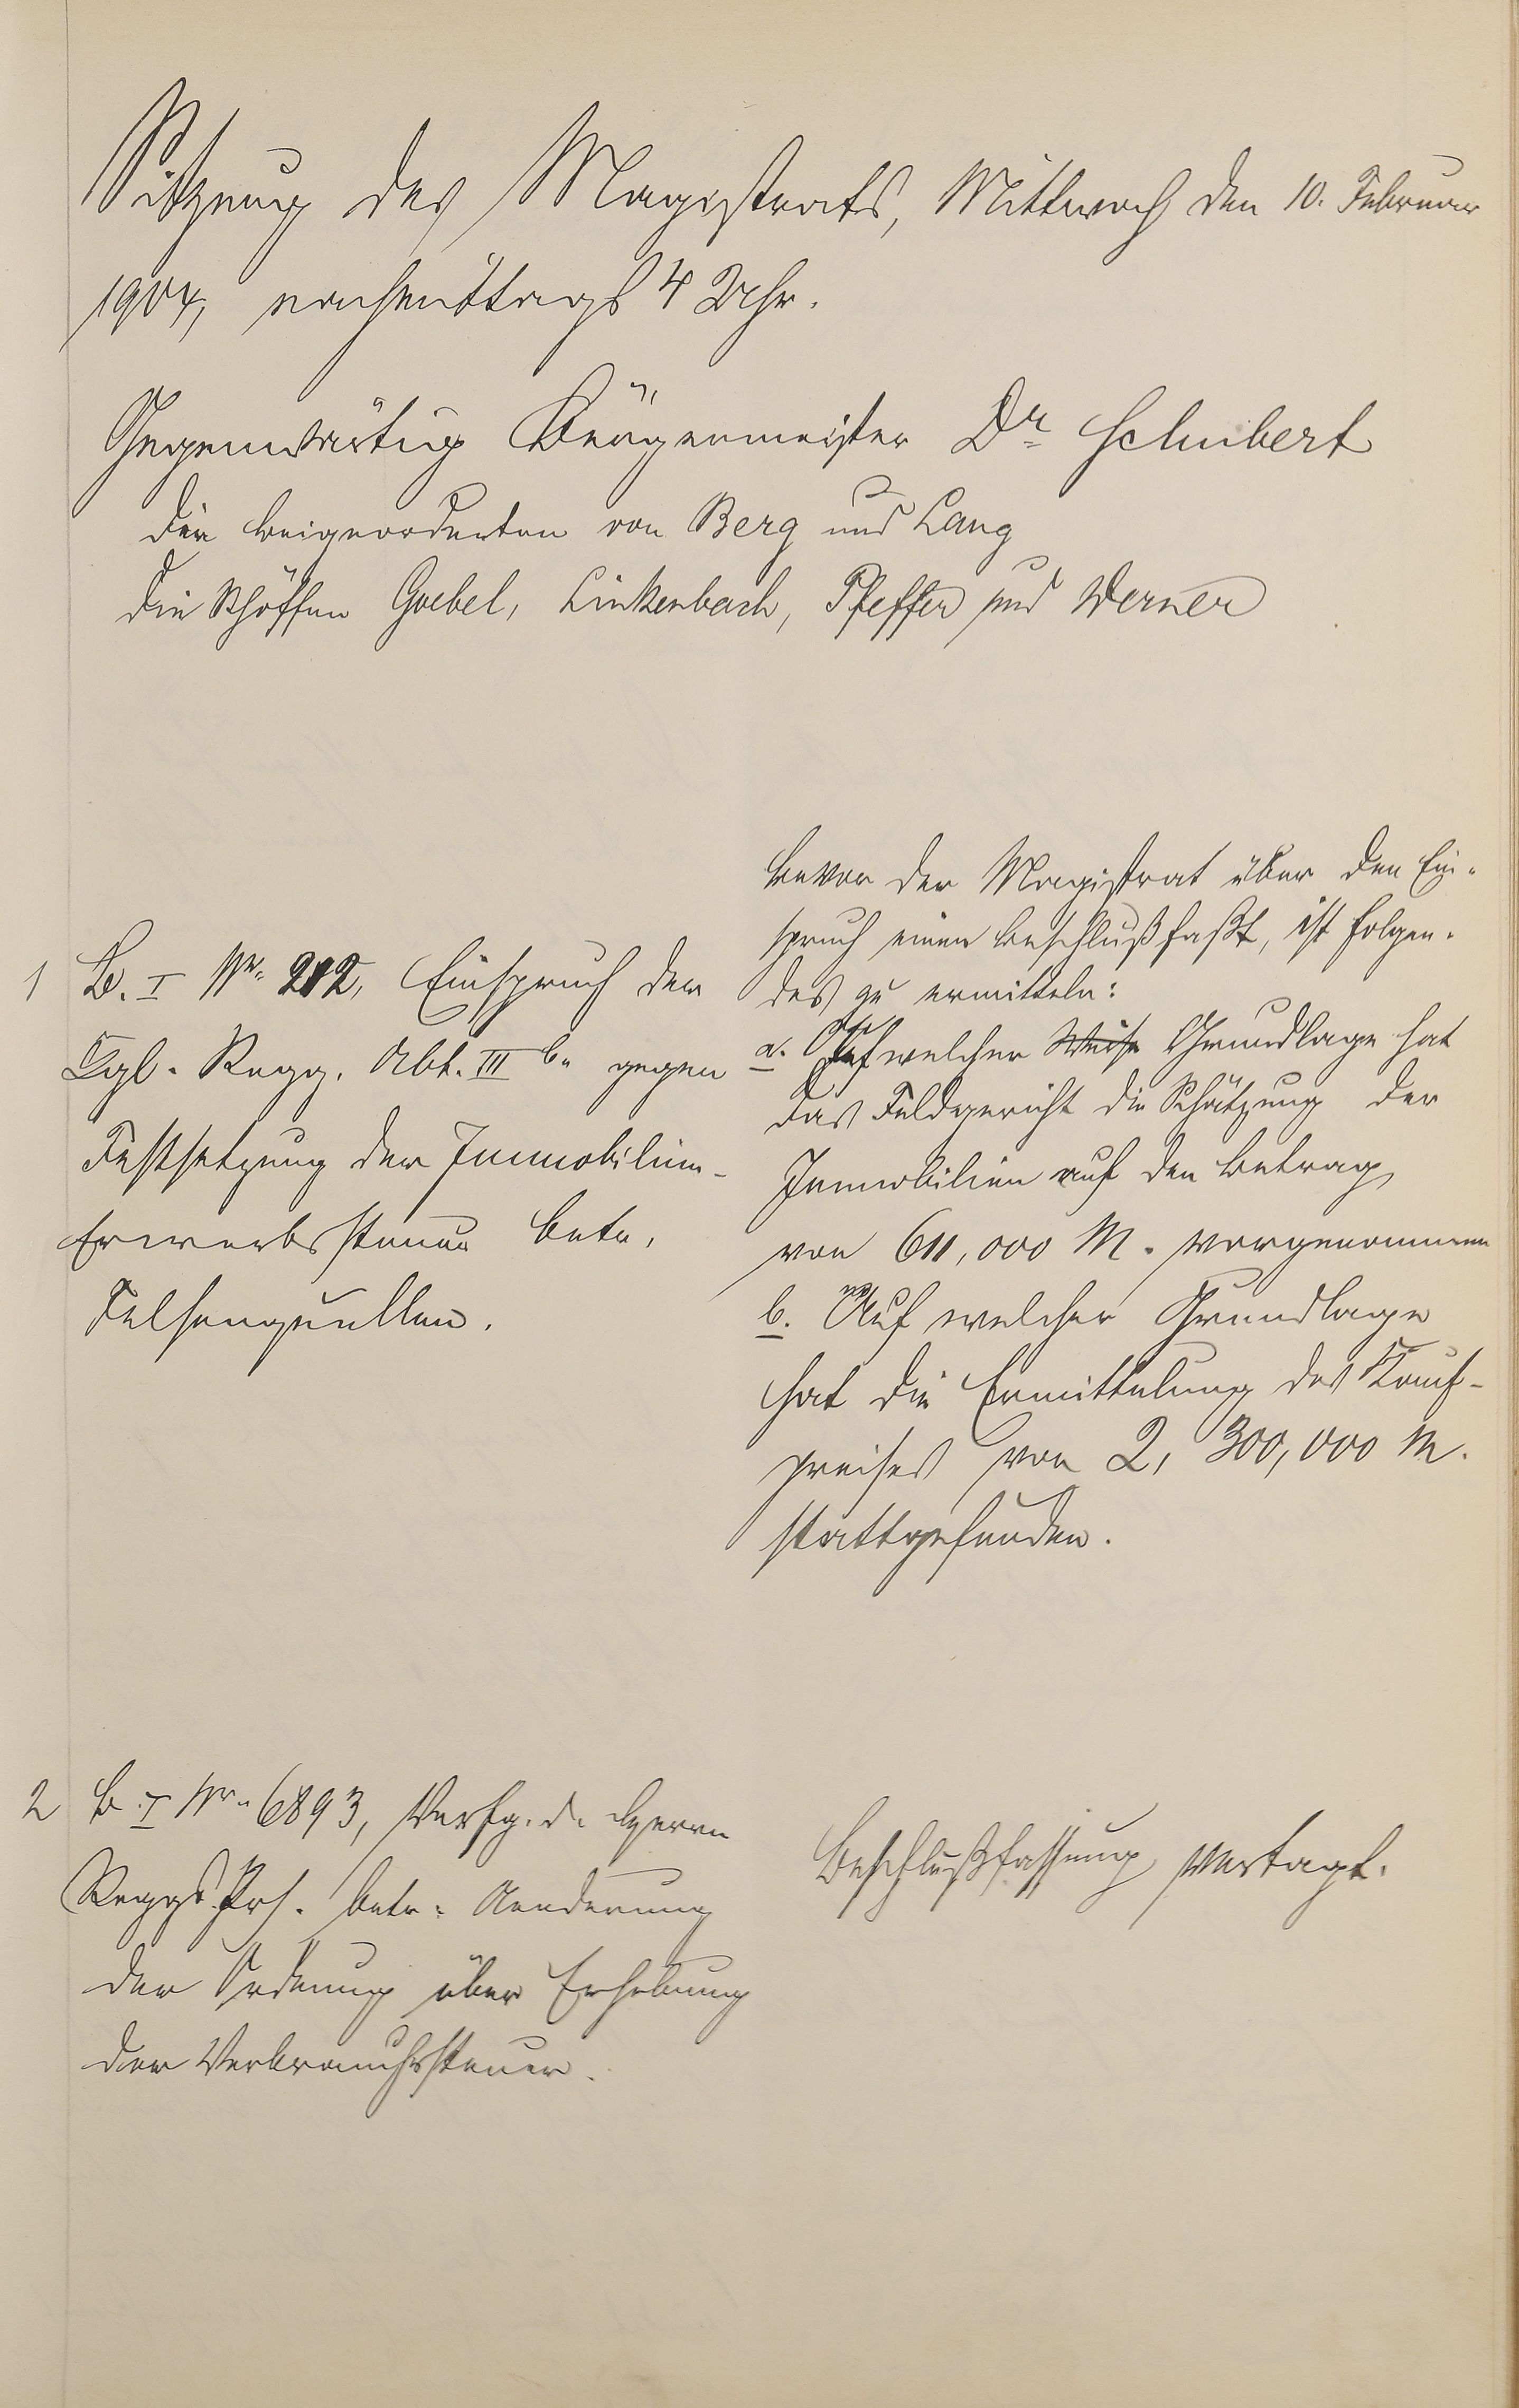 Sitzung des Magistrats, Mittwoch den 10. Februar
1904, nachmittags 4 Uhr.
Gegenwärtig Bürgermeister Dr. Schubert
die Beigeordneten von Berg und Lang
die Schöffen Goebel, Linkenbach, Pfeffer und Werner
1 B. I Nr. 212, Einspruch der
Kgl. Regg. Abt. III b. gegen
Festsetzung der Immobilien-
Erwerbssteuer betr.
Felsenquellen.
Bevor der Magistrat über den Ein-
spruch einen Beschluß faßt, ist folgen-
des zu ermitteln:
a. Auf welcher Weise Grundlage hat
das Feldgericht die Schätzung der
Immobilien auf den Betrag
von 611,000 M. vorgenommen
b. Auf welcher Grundlage
hat die Ermittelung des Kauf-
preises von 2,300,000 M.
stattgefunden.
2 B. I Nr. 6893, Verfg. d. Herrn
Reggs. Prs. betr. Aenderung
der Ordnung über Erhebung
der Verbrauchssteuer.
Beschlußfassung vertagt.